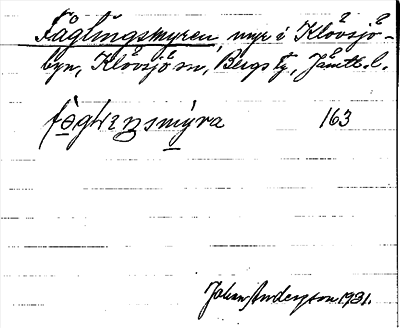 Fåglingsmyren, myr i Klövsjö-
byn, Klövsjö sn, Bergs tg, Jämtl. l.
163
Johan Anderson 1931.